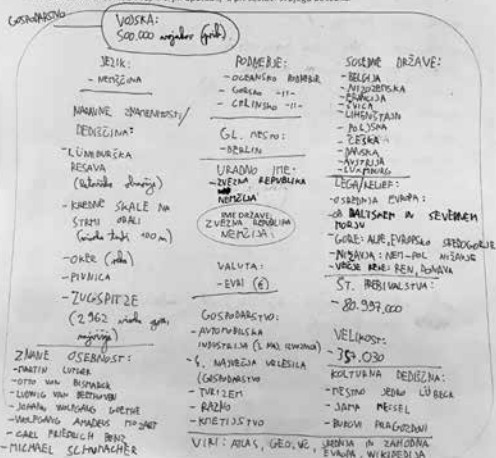 GOSPODARSTVO
VOJSKA:
500.000 vojakov
JEZIK:
- NEMŠČINA
NARAVNE ZNAMENITOSTI/
DEDIŠČINA:
- LÜNEBURŠKA
RESAVA
- KREDNE SKALE NA
STRMI OBALI
100 m)
- OKER
- PIVNICA
- ZUGSPITZE
(2962
ZNANE OSEBNOST:
- MARTIN LUTHER
- OTTO VON BISMARCK
- LUDWIG VAN BEETHOVEN
- JOHANN WOLFGANG GOETHE
- WOLFGANG AMADEUS MOZART
- CARL FRIEDRICH BENZ
- MICHAEL SCHUMACHER
PODNEBJE:
- OCEANSKO PODNEBJE
- GORSKO -11-
- CELINSKO -11-
GL. MESTO:
- BERLIN
URADNO IME:
- ZVEZNA REPUBLIKA
NEMČIJA
IME DRŽAVE:
ZVEZNA REPUBLIKA
NEMČIJA
VALUTA:
- EVRI (€)
GOSPODARSTVO:
- AVTOMOBILSKA
INDUSTRIJA
NAJVEČJA VELESILA
(GOSPODARSTVO
- TURIZEM
- RAZNO
- KMETIJSTVO
SOSEDNE DRŽAVE:
- BELGIJA
- NIZOZEMSKA
- FRANCIJA
- ŠVICA
- LIHENŠTAJN
- POLJSKA
- ČEŠKA
- DANSKA
- AVSTRIJA
- LUXEMBURG
LEGA/RELIEF:
- OSREDNJA EVROPA:
- OB BALTSKEM IN SEVERNEM
MORJU
- GORE: ALPE, EVROPSKO SREDOGORJE
- NIŽAVJA: NEM-POL NIŽAVJE
- VEČJE REKE: REN, DONAVA
ŠT. PREBIVALSTVA:
- 80.997.000
VELIKOST:
- 357.030
KULTURNA DEDIŠČINA:
- MESTNO JEDRO LÜBECK
- JAMA MESSEL
- BUKOVI PRAGOZDOVI
VIRI: ATLAS, GEO, UČ, SREDNJA IN ZAHODNA
EVROPA, WIKIPEDIJA